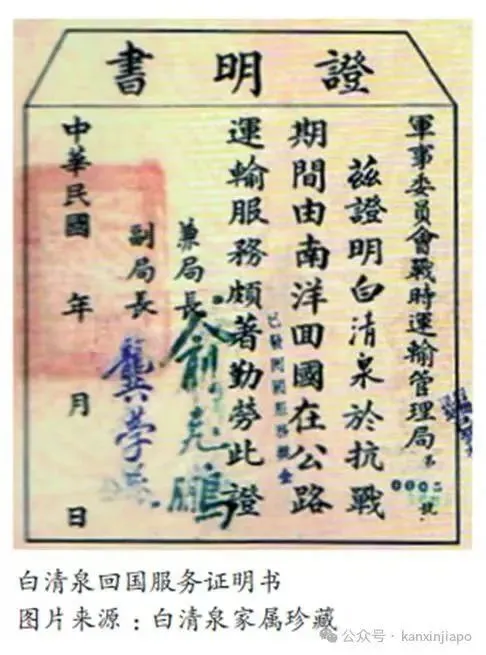 證明書
軍事委員會戰時運輸管理局
第 號
茲證明白清泉於抗戰
期間由南洋囬國在公路
運輸服務頗著勤勞此證
兼局長 俞飛鵬
副局長 龔學遂
中華民國 年 月 日
白清泉回国服务证明书
图片来源：白清泉家属珍藏
公众号·kanxinjiapo